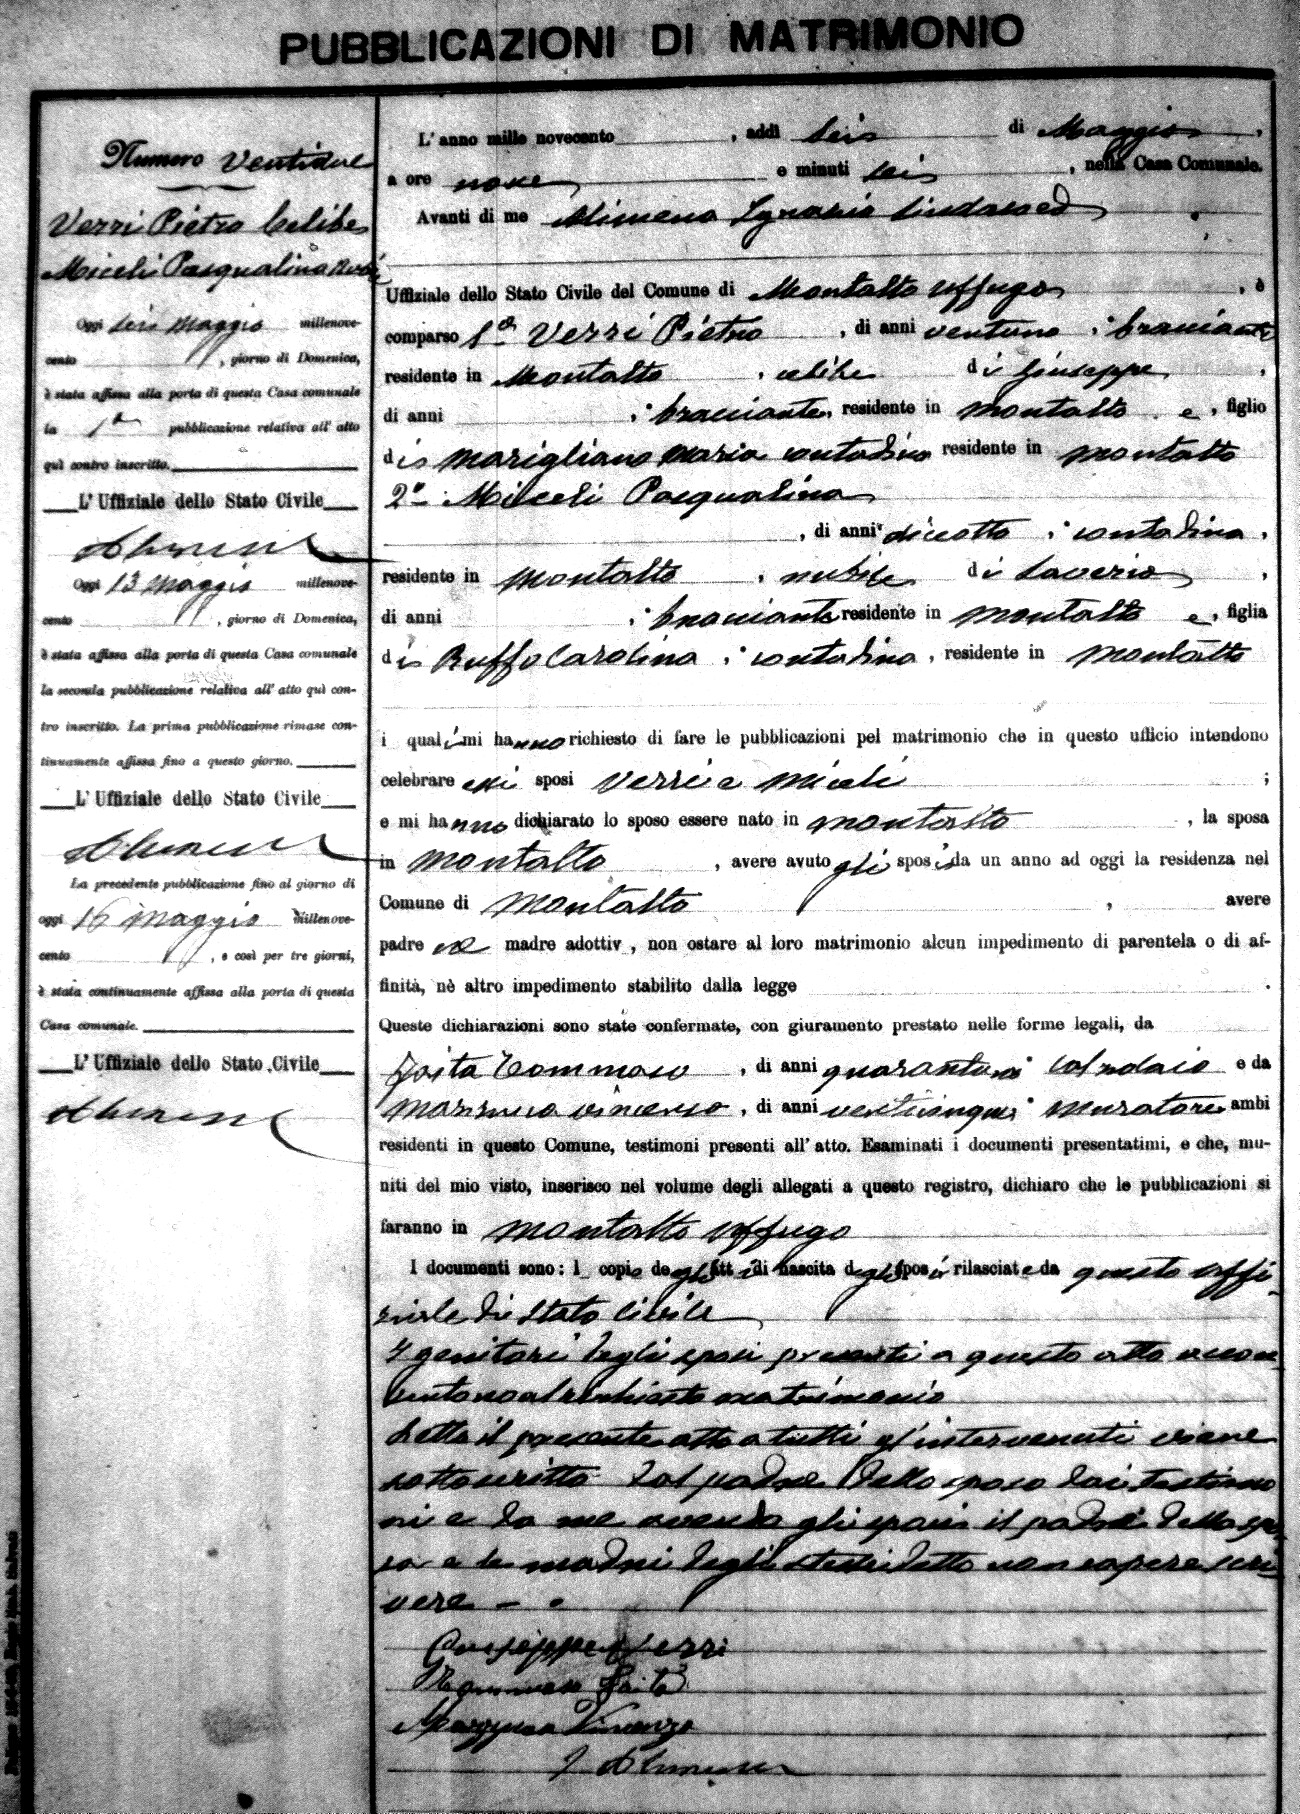 PUBBLICAZIONI DI MATRIMONIO
Numero Ventidue
Verri Pietro Celibe
Miceli Pasqualina Nubile
Oggi sei Maggio millenove-
cento , giorno di Domenica,
è stata affissa alla porta di questa Casa comunale
la 1a pubblicazione relativa all' atto
quì contro inscritto.
L' Uffiziale dello Stato Civile
Oggi 13 Maggio millenove-
cento , giorno di Domenica,
è stata affissa alla porta di questa Casa comunale
la seconda pubblicazione relativa all' atto quì con-
tro inscritto. La prima pubblicazione rimase con-
tinuamente affissa fino a questo giorno.
L' Uffiziale dello Stato Civile
La precedente pubblicazione fino al giorno di
oggi 16 Maggio millenove-
cento , e così per tre giorni,
è stata continuamente affissa alla porta di questa
Casa comunale.
L' Uffiziale dello Stato Civile
L' anno mille novecento , addì seis di Maggio ,
a ore nove e minuti seis , nella Casa Comunale.
Avanti di me Alimena Ignazio Sindaco ed
Uffiziale dello Stato Civile del Comune di Montalto Uffugo , è
comparso 1o Verri Pietro , di anni ventuno , bracciante
residente in Montalto , celibe di Giuseppe ,
di anni , bracciante, residente in Montalto e , figlio
dis Marigliano Maria contadina residente in Montalto
2o Miceli Pasqualina
, di anni diciotto , contadina ,
residente in Montalto , nubile di Saverio ,
di anni , bracciante residente in Montalto e , figlia
dis Ruffo Carolina , contadina , residente in Montalto
i quali mi hanno richiesto di fare le pubblicazioni pel matrimonio che in questo ufficio intendono
celebrare essi sposi Verri e Miceli ;
e mi hanno dichiarato lo sposo essere nato in Montalto , la sposa
in Montalto , avere avuto gli sposi da un anno ad oggi la residenza nel
Comune di Montalto , avere
padre o madre adottiv , non ostare al loro matrimonio alcun impedimento di parentela o di af-
finità, nè altro impedimento stabilito dalla legge .
Queste dichiarazioni sono state confermate, con giuramento prestato nelle forme legali, da
Gaita Tommaso , di anni quarantuno calzolaio e da
Mazzuca Vincenzo , di anni venticinque muratore ambi
residenti in questo Comune, testimoni presenti all' atto. Esaminati i documenti presentatimi, e che, mu-
niti del mio visto, inserisco nel volume degli allegati a questo registro, dichiaro che le pubblicazioni si
faranno in Montalto Uffugo
I documenti sono: l copie degli atti di nascita degli sposi rilasciate da questo uffi-
ziale di Stato Civile
I genitori degli sposi presenti a questo atto accon
sentono al richiesto matrimonio
Letto il presente atto a tutti gl'intervenuti viene
sottoscritto dal padre dello sposo dai testimo
ni e da me avendo gli sposi il padre della spo
sa e le madri degli stessi detto non sapere scri
vere
Giuseppe Verri
Tommaso Gaita
Mazzuca Vincenzo
I Alimena